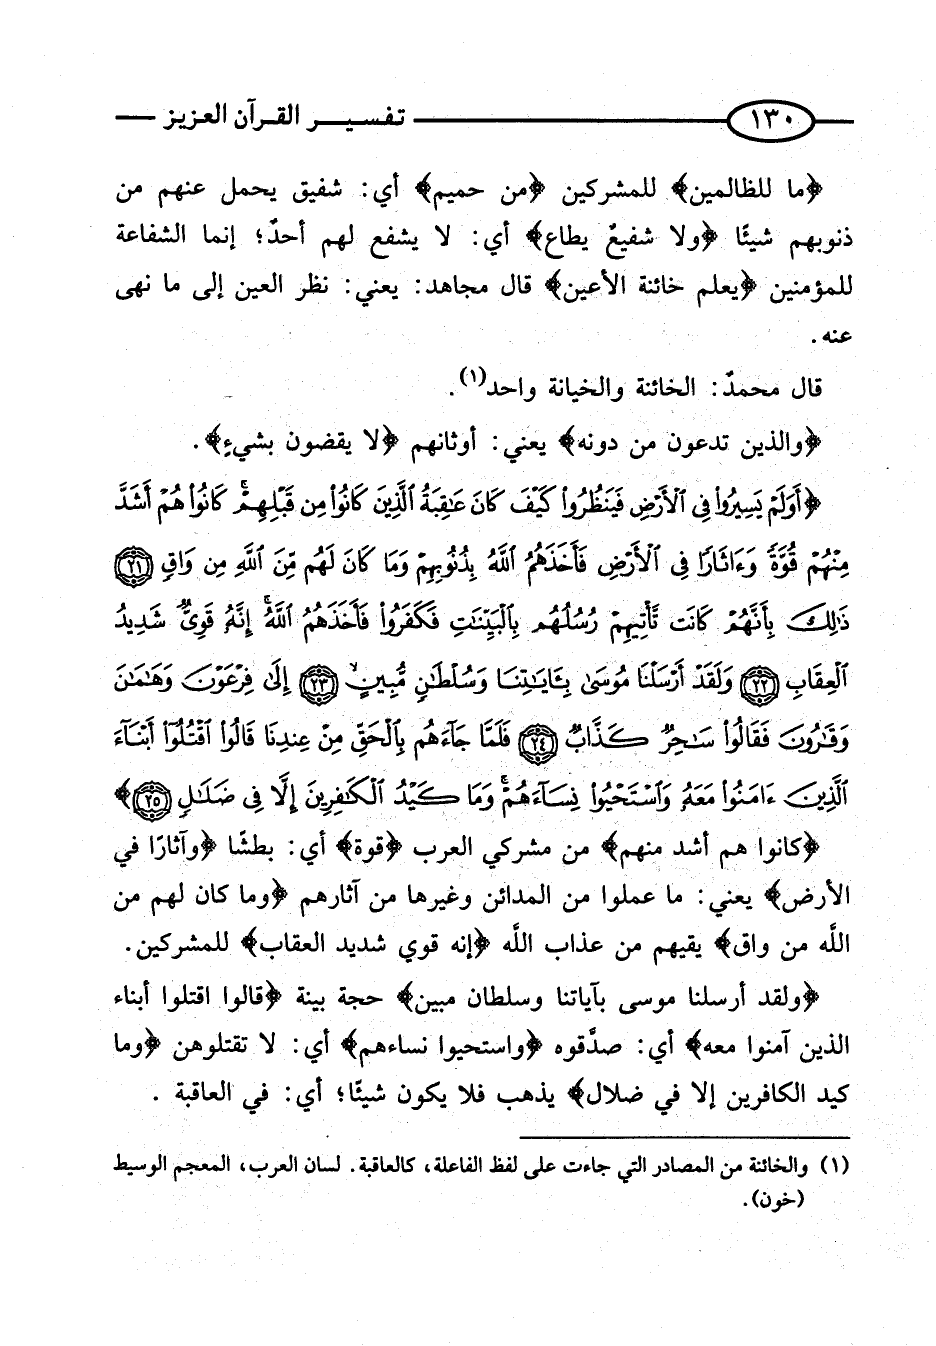 ١٣٠ تفسير القرآن العزيز
﴿ما للظالمين﴾ للمشركين ﴿من حميم﴾ أي: شفيق يحمل عنهم من
ذنوبهم شيئًا ﴿ولا شفيعٌ يطاع﴾ أي: لا يشفع لهم أحدٌ؛ إنما الشفاعة
للمؤمنين ﴿يعلم خائنة الأعين﴾ قال مجاهد: يعني: نظر العين إلى ما نهى
عنه.
قال محمدٌ: الخائنة والخيانة واحد(١).
﴿والذين تدعون من دونه﴾ يعني: أوثانهم ﴿لا يقضون بشيءٍ﴾.
﴿أَوَلَمْ يَسِيرُوا۟ فِى ٱلْأَرْضِ فَيَنظُرُوا۟ كَيْفَ كَانَ عَـٰقِبَةُ ٱلَّذِينَ كَانُوا۟ مِن قَبْلِهِمْ ۚ كَانُوا۟ هُمْ أَشَدَّ
مِنْهُمْ قُوَّةً وَءَاثَارًا فِى ٱلْأَرْضِ فَأَخَذَهُمُ ٱللَّهُ بِذُنُوبِهِمْ وَمَا كَانَ لَهُم مِّنَ ٱللَّهِ مِن وَاقٍ ﴿٢١﴾
ذَٰلِكَ بِأَنَّهُمْ كَانَت تَّأْتِيهِمْ رُسُلُهُم بِٱلْبَيِّنَـٰتِ فَكَفَرُوا۟ فَأَخَذَهُمُ ٱللَّهُ ۚ إِنَّهُۥ قَوِىٌّ شَدِيدُ
ٱلْعِقَابِ ﴿٢٢﴾ وَلَقَدْ أَرْسَلْنَا مُوسَىٰ بِـَٔايَـٰتِنَا وَسُلْطَـٰنٍ مُّبِينٍ ﴿٢٣﴾ إِلَىٰ فِرْعَوْنَ وَهَـٰمَـٰنَ
وَقَـٰرُونَ فَقَالُوا۟ سَـٰحِرٌ كَذَّابٌ ﴿٢٤﴾ فَلَمَّا جَآءَهُم بِٱلْحَقِّ مِنْ عِندِنَا قَالُوا۟ ٱقْتُلُوٓا۟ أَبْنَآءَ
ٱلَّذِينَ ءَامَنُوا۟ مَعَهُۥ وَٱسْتَحْيُوا۟ نِسَآءَهُمْ ۚ وَمَا كَيْدُ ٱلْكَـٰفِرِينَ إِلَّا فِى ضَلَـٰلٍ ﴿٢٥﴾﴾
﴿كانوا هم أشد منهم﴾ من مشركي العرب ﴿قوة﴾ أي: بطشًا ﴿وآثارًا في
الأرض﴾ يعني: ما عملوا من المدائن وغيرها من آثارهم ﴿وما كان لهم من
اللَّه من واق﴾ يقيهم من عذاب اللَّه ﴿إنه قوي شديد العقاب﴾ للمشركين.
﴿ولقد أرسلنا موسى بآياتنا وسلطان مبين﴾ حجة بينة ﴿قالوا اقتلوا أبناء
الذين آمنوا معه﴾ أي: صدَّقوه ﴿واستحيوا نساءهم﴾ أي: لا تقتلوهن ﴿وما
كيد الكافرين إلا في ضلال﴾ يذهب فلا يكون شيئًا؛ أي: في العاقبة .
(١) والخائنة من المصادر التي جاءت على لفظ الفاعلة، كالعاقبة. لسان العرب، المعجم الوسيط
(خون).